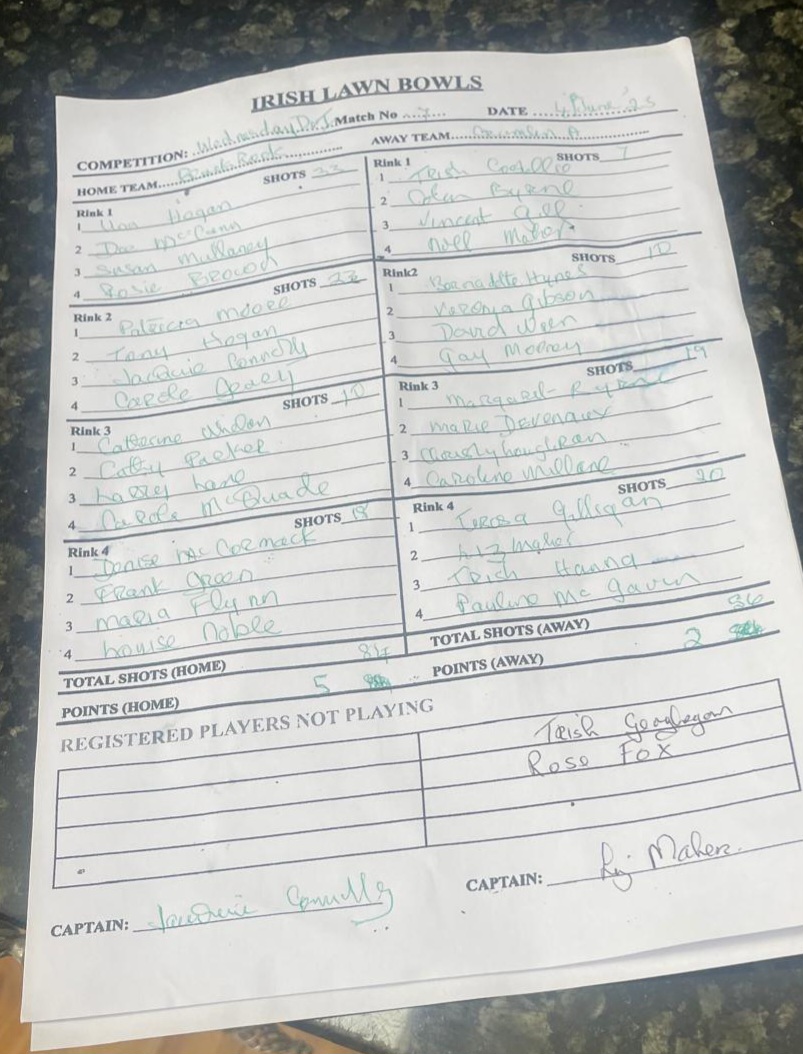 IRISH LAWN BOWLS
COMPETITION: Wednesday Match No 7 DATE 4 June '25
HOME TEAM AWAY TEAM
Rink 1 SHOTS 22
1 Una Hogan
2 Dee McCann
3 Susan Mullaney
4 Rosie Brown
Rink 2 SHOTS
1 Patricia Moore
2 Tony Hogan
3 Jacquie Connolly
4 Carole Geary
Rink 3 SHOTS 10
1 Catherine Whelan
2 Cathy Parker
3 Larry Lane
4 Carole McQuade
Rink 4 SHOTS
1 Denise McCormack
2 Frank Green
3 Maria Flynn
4 Louise Noble
TOTAL SHOTS (HOME)
POINTS (HOME) 5
Rink 1 SHOTS 7
1 Trish Costelloe
2 Colm Byrne
3 Vincent Gill
4 Noel Maher
Rink2 SHOTS 10
1 Bernadette Hynes
2 Gibson
3 David
4 Gay Mooney
Rink 3 SHOTS 19
1 Margaret Byrne
2 Marie Devenaux
3
4 Caroline
Rink 4 SHOTS 20
1 Teresa Gilligan
2 Liz Maher
3 Trish Hanna
4 Pauline Mc Gavin
TOTAL SHOTS (AWAY) 56
POINTS (AWAY) 2
REGISTERED PLAYERS NOT PLAYING
Trish Geoghegan
Rose Fox
CAPTAIN: Jacquie Connolly
CAPTAIN: Liz Maher